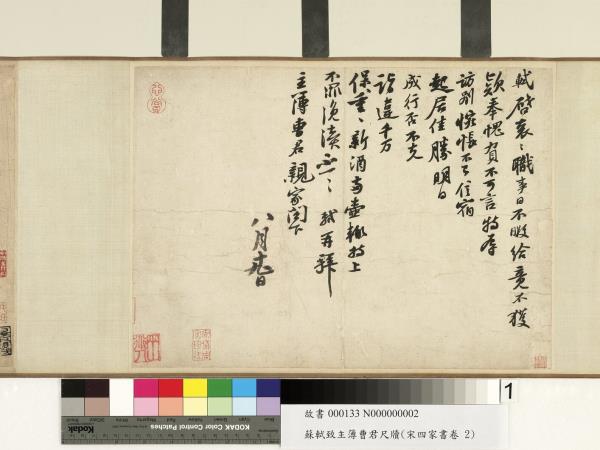 軾啓衰衰職事日不暇給竟不獲
款奉愧負不可言特辱
訪別悵悵不已信宿
起居佳勝明日
成行否不克
詣違千万
保重保重新酒兩壺輒持上
不罪浼瀆不一不一軾再拜
主簿曹君親家閣下
八月
Blue
Cyan
Green
Yellow
Red
Magenta
White
3/Color
Black
KODAK Color Control Patches
1
故書 000133 N000000002
蘇軾致主簿曹君尺牘(宋四家書卷 2)